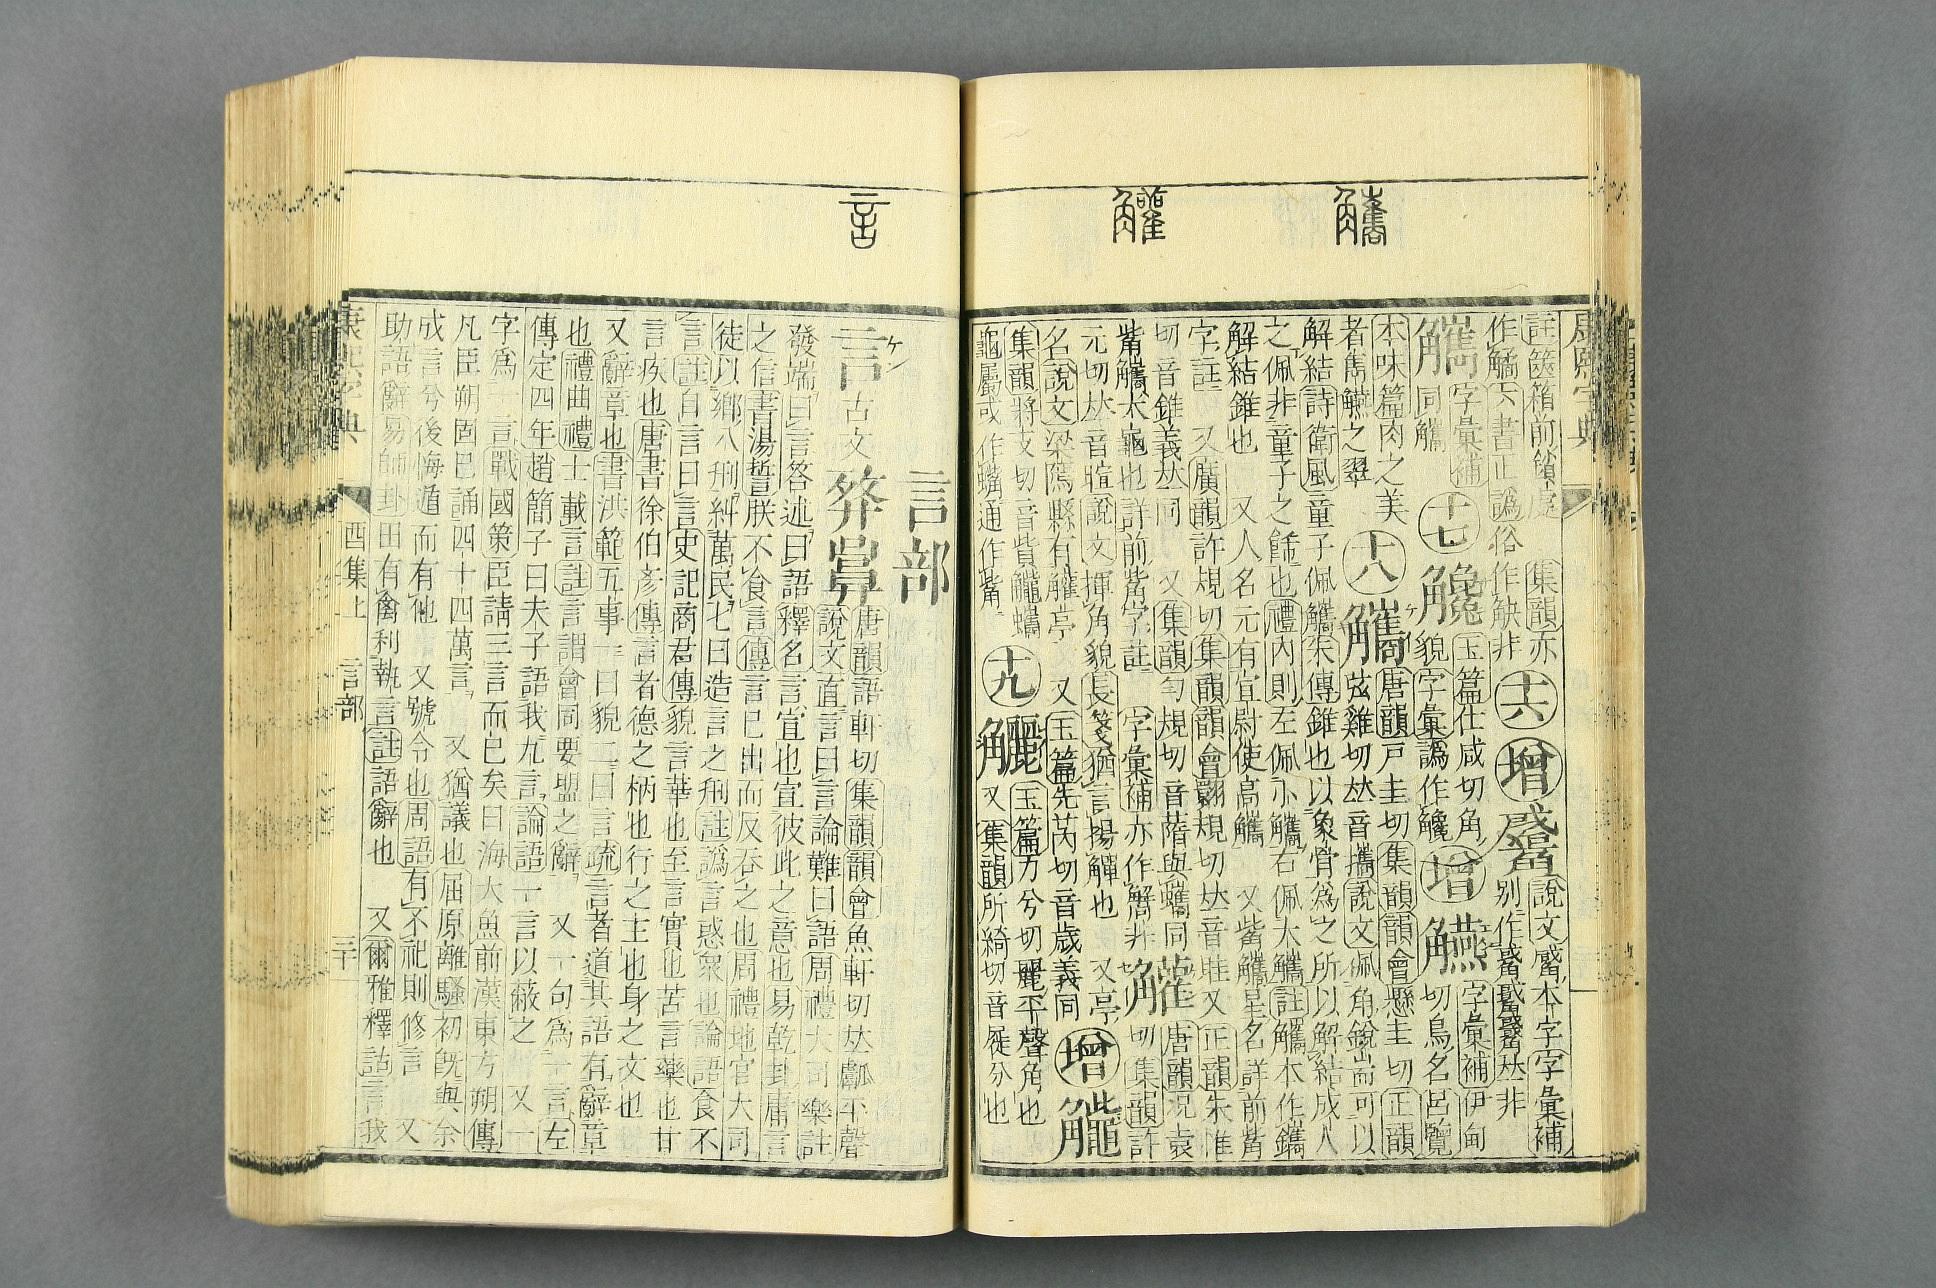 康熙字典
集韻亦
作觼
字彙補
同觿
十六
增
十七
玉篇仕咸切角
貌字彙譌作
增
字彙補伊甸
切鳥名呂覽
本味篇肉之美
者雋觾之翠
十八
觿
唐韻戸圭切集韻韻會懸圭切正韻
弦雞切𠀤音攜說文佩角銳耑可以
解結詩衛風童子佩觿朱傳錐也以象骨爲之所以解結成人
之佩非童子之飾也禮內則左佩小觿右佩大觿註觿本作鑴
解結錐也 又人名元有宜尉使高觿 又觜觿星名詳前觜
字註 又廣韻許規切集韻韻會翾規切𠀤音眭又正韻朱惟
切音錐義𠀤同 又集韻勻規切音𢥠與蠵同
觜觿大龜也詳前觜字註 字彙補亦作觹非
唐韻況袁
切集韻許
元切𠀤音暄說文揮角貌長箋猶言揚觶也 又亭
名說文梁隱縣有亭 又玉篇先芮切音歲義同
增
集韻將支切音貲
龜屬或作蠵通作觜
十九
玉篇力兮切麗平聲角也
又集韻所綺切音屣分也
言部
言
古文
唐韻語軒切集韻韻會魚軒切𠀤甗平聲
說文直言曰言論難曰語周禮大司樂註
發端曰言答述曰語釋名言宣也宣彼此之意也易乾卦庸言
之信書湯誓朕不食言傳言已出而反吞之也周禮地官大司
徒以鄉八刑糾萬民七曰造言之刑註譌言惑衆也論語食不
言註自言曰言史記商君傳貌言華也至言實也苦言藥也甘
言疾也唐書徐伯彥傳言者德之柄也行之主也身之文也
又辭章也書洪範五事一曰貌二曰言疏言者道其語有辭章
也禮曲禮士載言註言謂會同要盟之辭 又一句爲一言左
傳定四年趙簡子曰夫子語我九言論語一言以蔽之 又一
字爲一言戰國策臣請三言而已矣曰海大魚前漢東方朔傳
凡臣朔固已誦四十四萬言 又猶議也屈原離騷初旣與余
成言兮後悔遁而有他 又號令也周語有不祀則修言 又
助語辭易師卦田有禽利執言註語辭也 又爾雅釋詁言我
康熙字典
酉集上
言部
二十